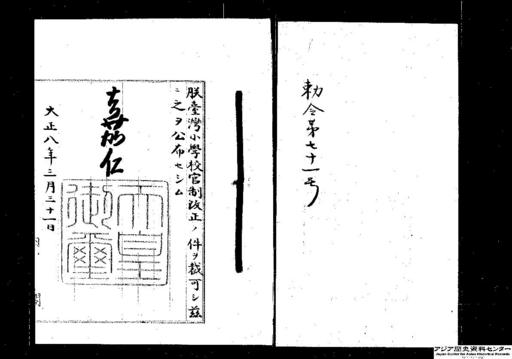 勅令第七十一号
朕臺灣小學校官制改正ノ件ヲ裁可シ茲
ニ之ヲ公布セシム
嘉仁
天皇
御璽
大正八年三月三十一日
アジア歴史資料センター
Japan Center for Asian Historical Records